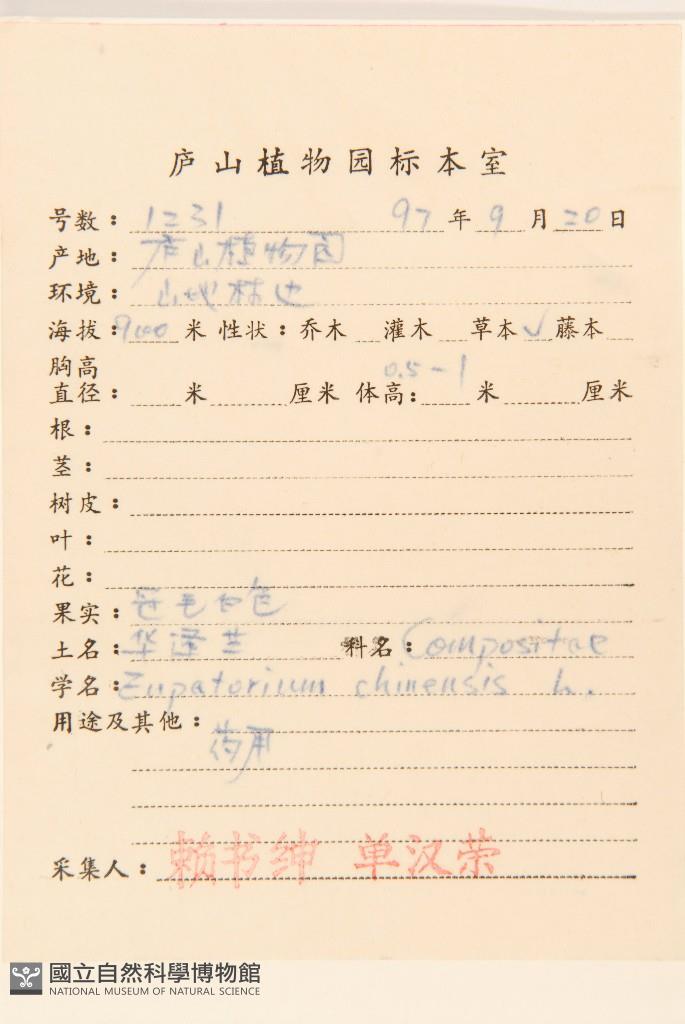 庐山植物园标本室
号数：1231 97年9月20日
产地：庐山植物园
环境：山地林边
海拔：900米 性状：乔木 灌木 草本✓ 藤本
胸高
直径： 米 厘米 体高：0.5-1 米 厘米
根：
茎：
树皮：
叶：
花：
果实：冠毛白色
土名：华泽兰 科名：Compositae
学名：Eupatorium chinensis L.
用途及其他：
药用
采集人：赖书绅 单汉荣
國立自然科學博物館
NATIONAL MUSEUM OF NATURAL SCIENCE